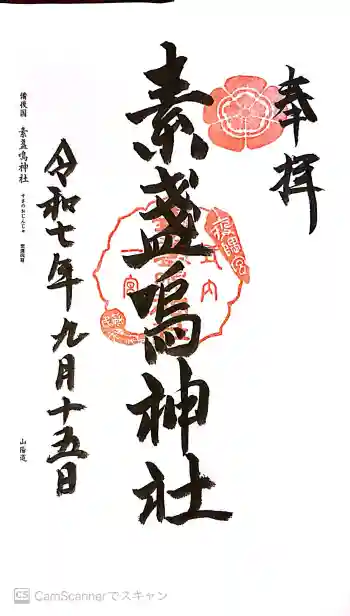 奉拝
素盞嗚神社
令和七年九月十五日
備後国 素盞嗚神社 すさのおじんじゃ
山陽道
CS CamScannerでスキャン